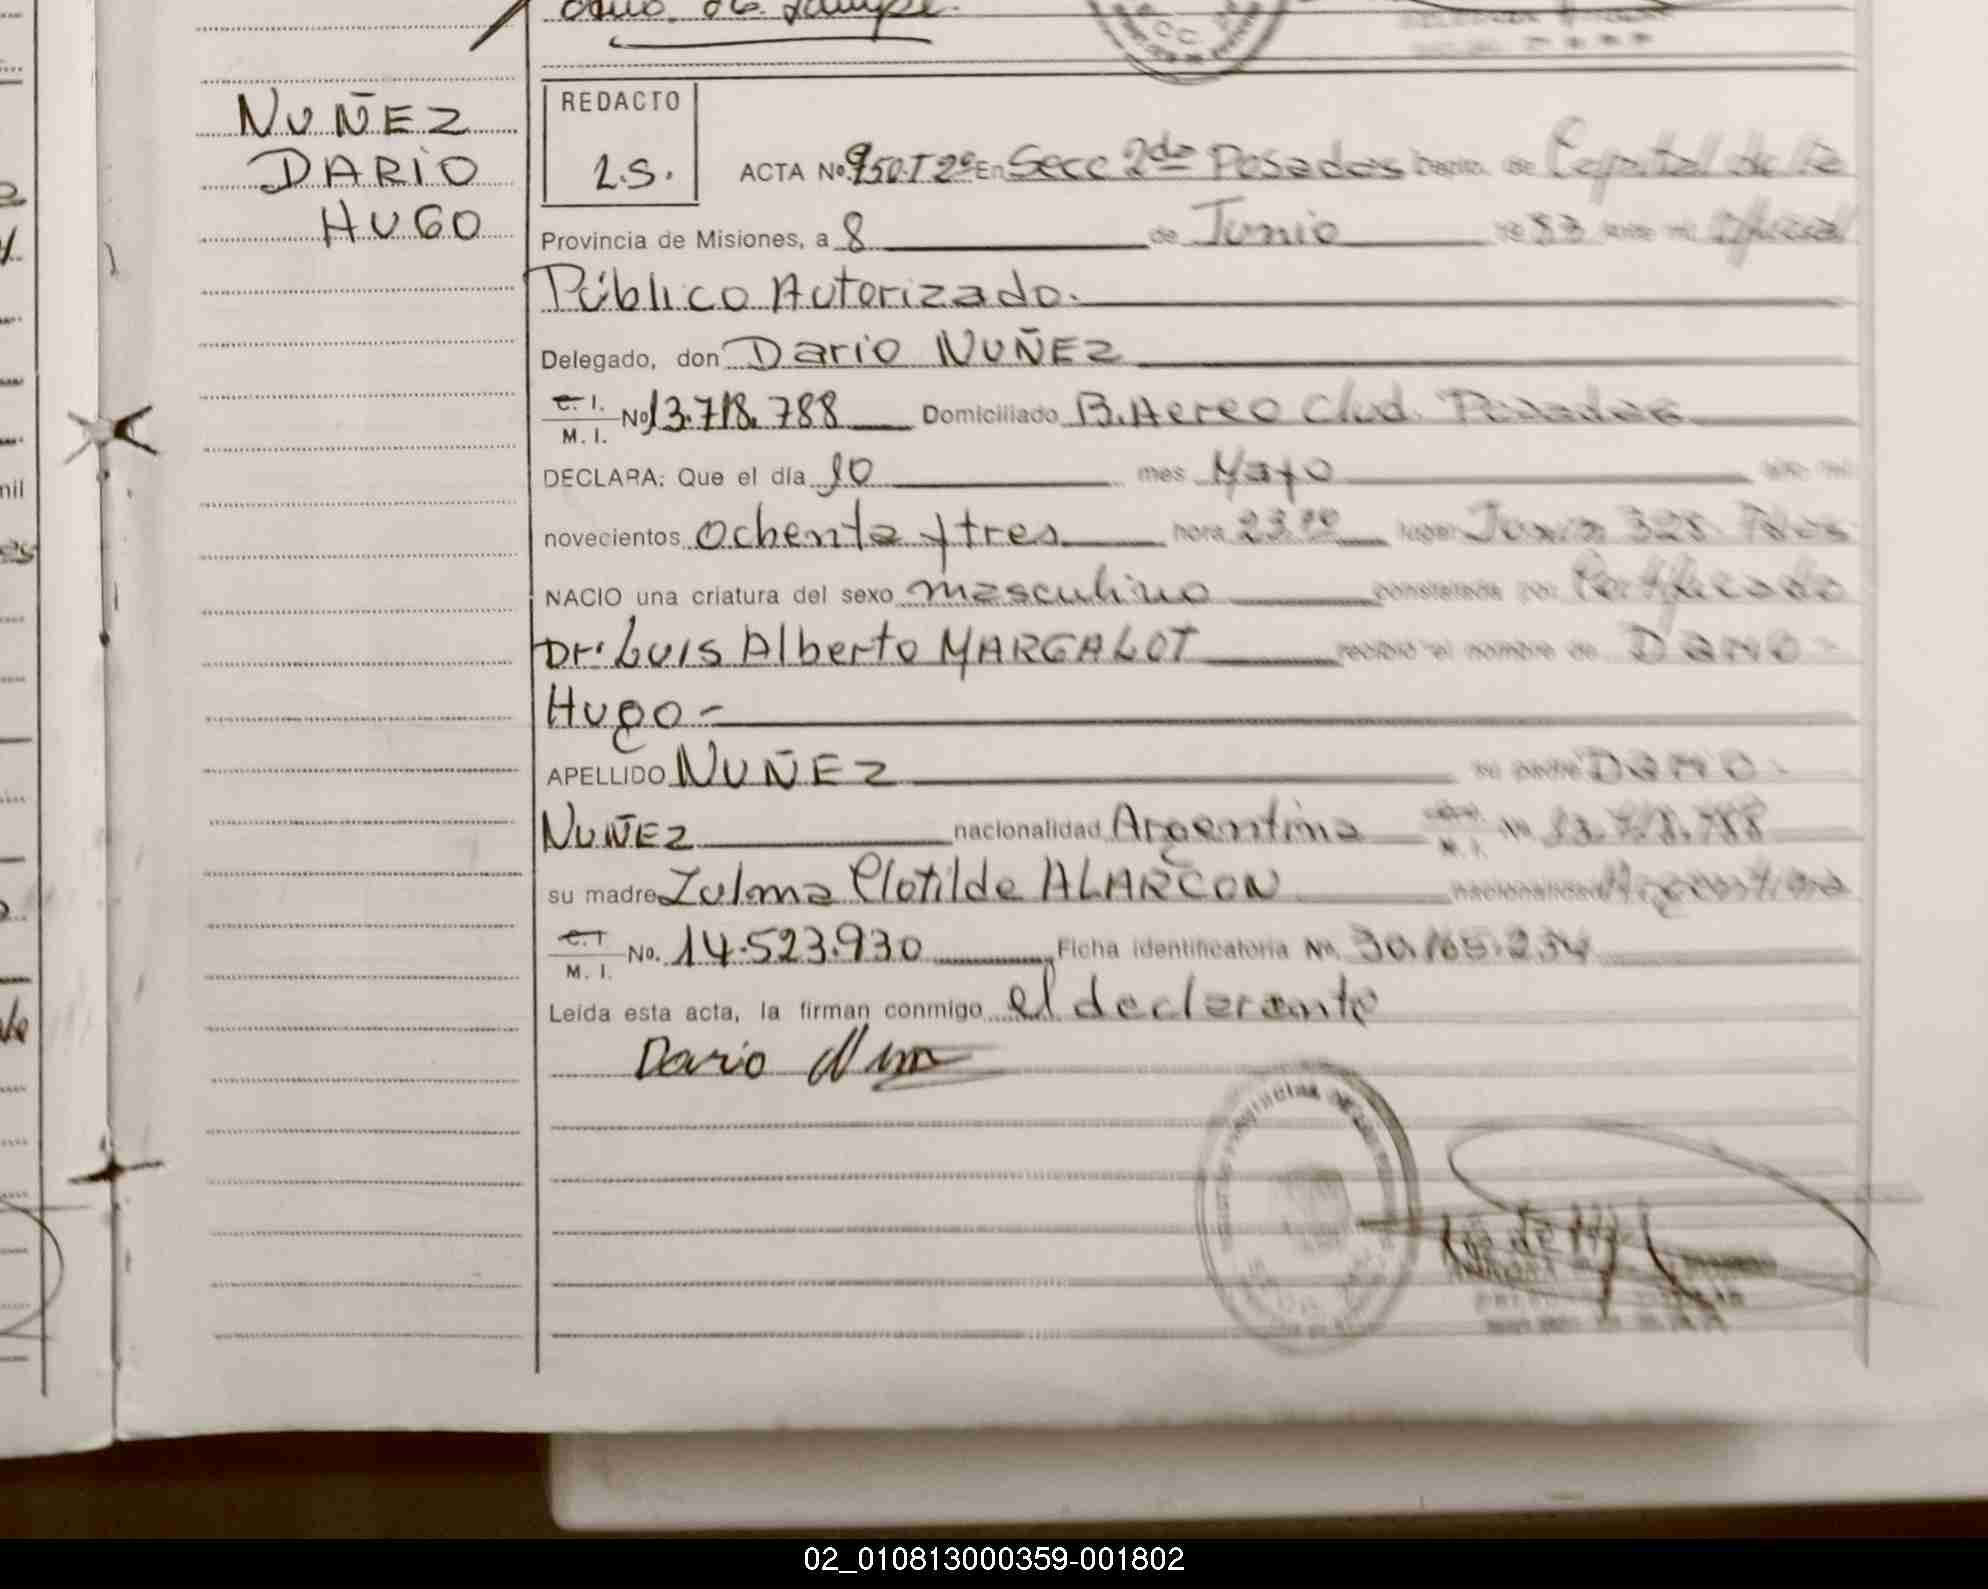 NUÑEZ
DARIO
HUGO
REDACTO
L.S.
ACTA Nº 950.T2º En Secc 2da Posadas Depto. de Capital de la
Provincia de Misiones, a 8 de Junio 1983 ante mi Oficial
Público Autorizado.
Delegado, don Dario NUÑEZ
C. I.
M. I.
Nº 13.718.788 Domiciliado B. Aereo Club. Posadas
DECLARA: Que el día 10 mes Mayo año mil
novecientos ochenta y tres hora 23.00 lugar Junin 328 Pdas
NACIO una criatura del sexo masculino constatada por Certificado
Dr. Luis Alberto MARGALOT recibió el nombre de DARIO -
Hugo -
APELLIDO NUÑEZ su padre DARIO -
NUÑEZ nacionalidad Argentina M. I. Nº 13.718.788
su madre Zulma Clotilde ALARCON nacionalidad Argentina
C. I
M. I.
No. 14.523.930 Ficha identificatoria No. 30.165.234
Leída esta acta, la firman conmigo el declarante
Dario
02_010813000359-001802